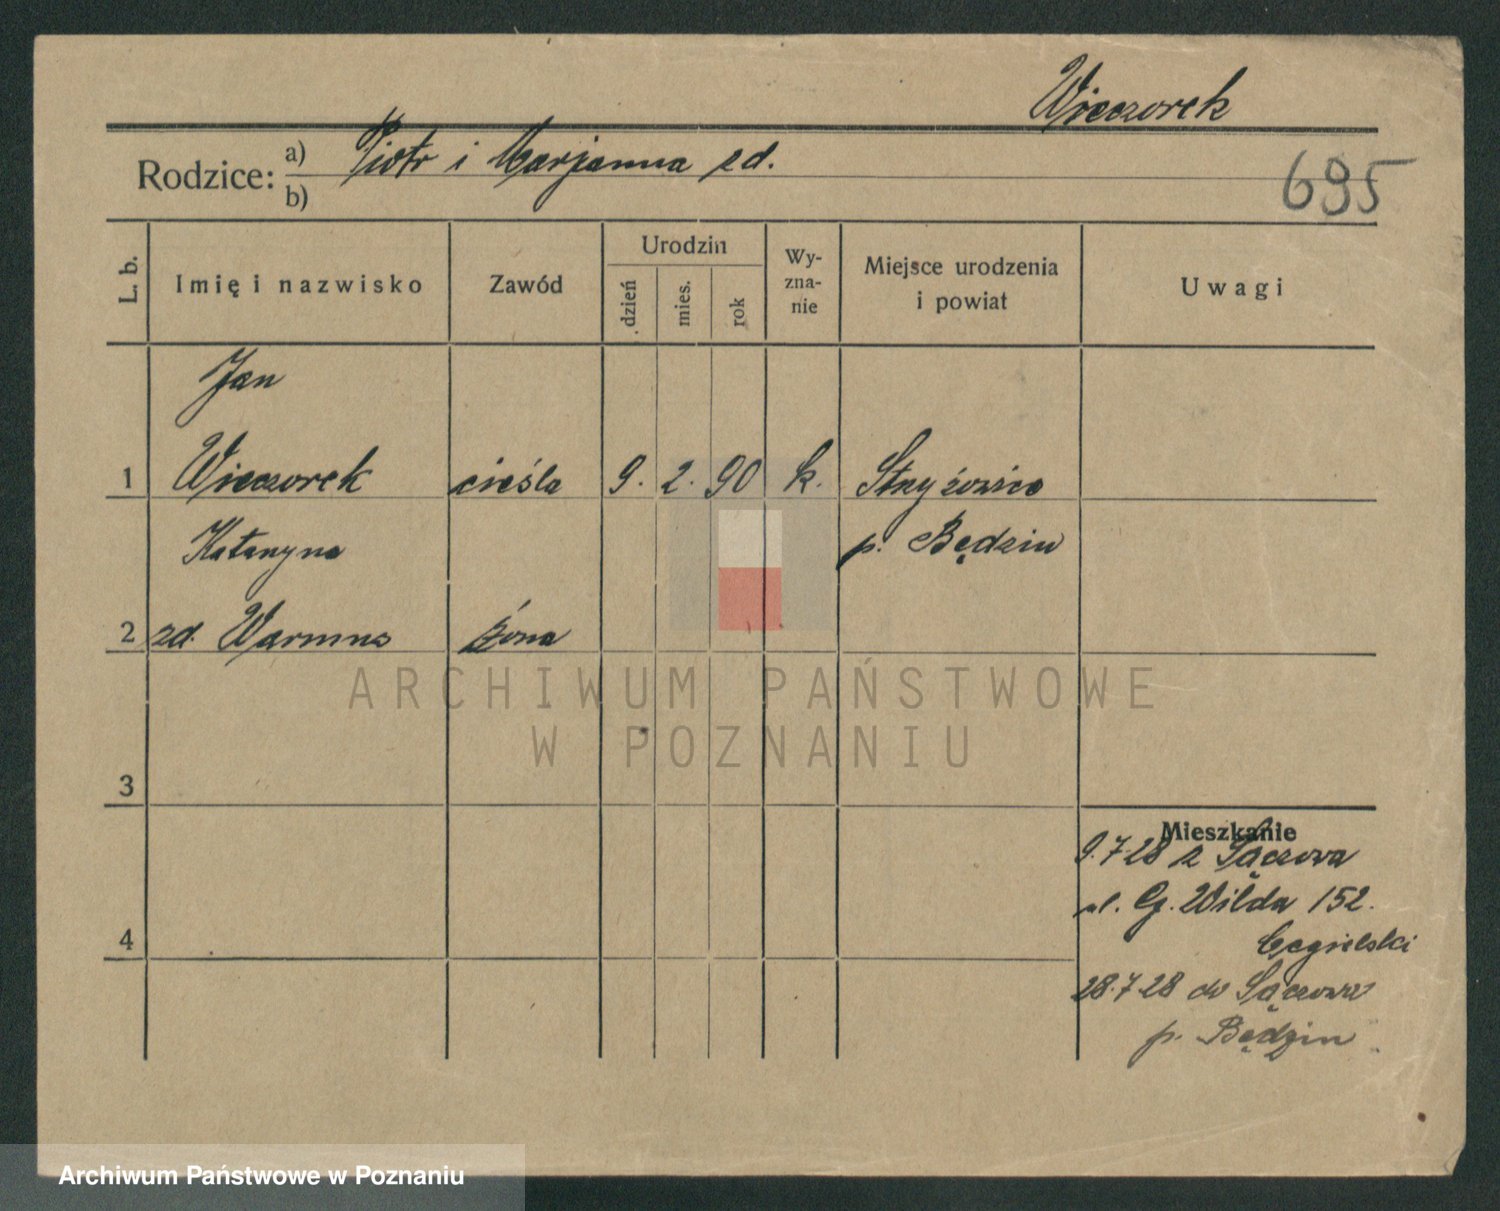 Wieczorek
Rodzice: a) Piotr i Marjanna zd.
b)
695
L. b.
Imię i nazwisko
Zawód
Urodzin
dzień
mies.
rok
Wy-
zna-
nie
Miejsce urodzenia
i powiat
Uwagi
Jan
1 Wieczorek cieśla 9. 2. 90 k. Strzyżowice
Katarzyna p. Będzin
2 zd. Warmus żona
ARCHIWUM PAŃSTWOWE
W POZNANIU
3
Mieszkanie
9.7.28 z Sączowa
ul. G. Wilda 152.
4
Cegielski
28.7.28 do Sączowa
p. Będzin
Archiwum Państwowe w Poznaniu